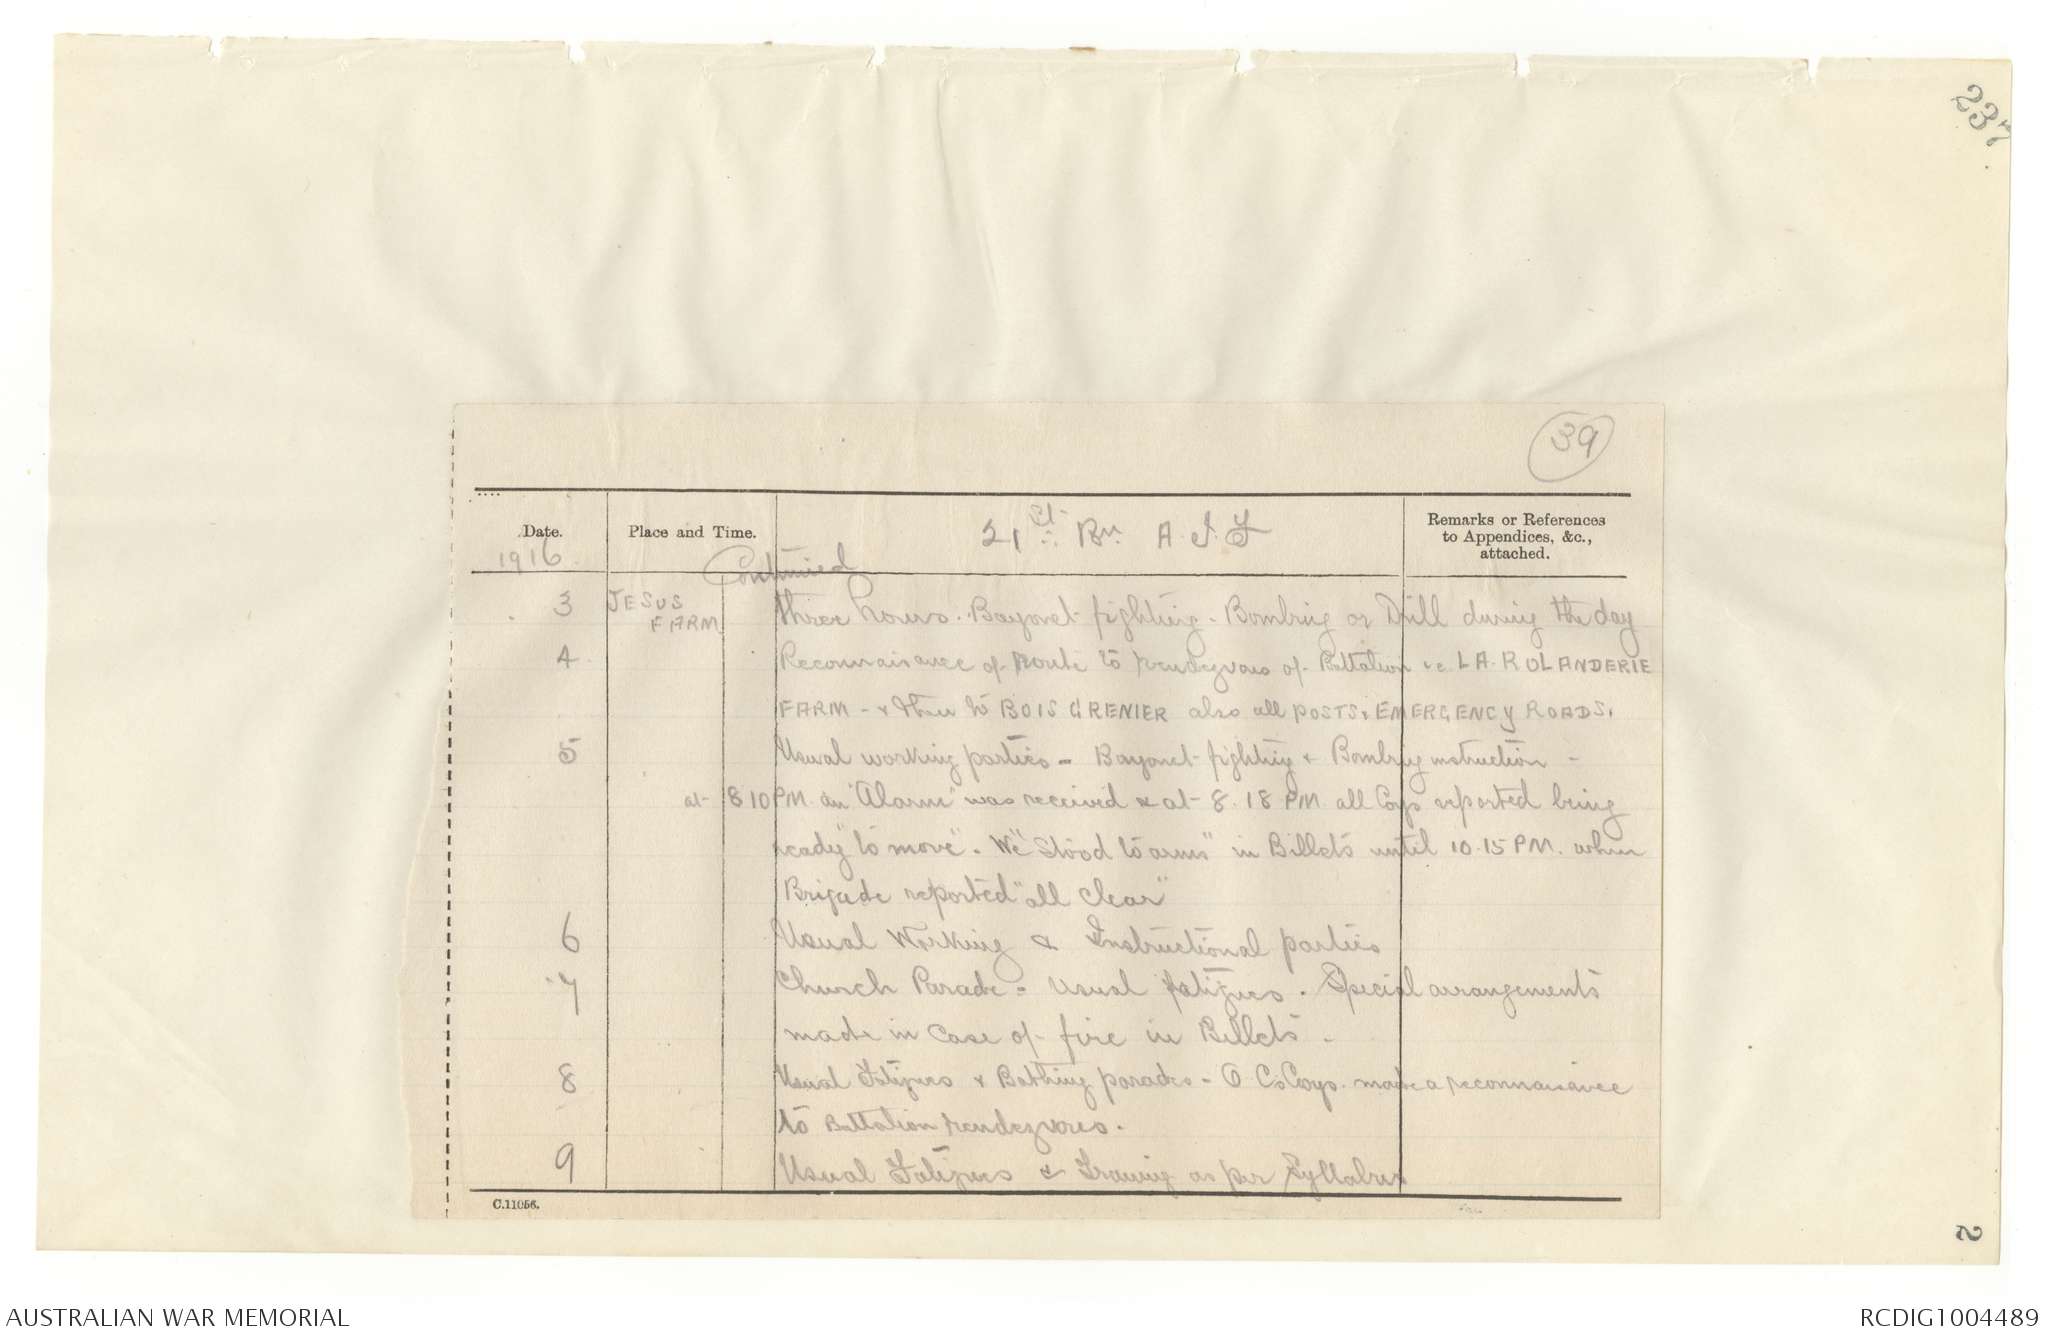 237
39
Date. Place and Time. 21st Bn. A.I.F Remarks or References
to Appendices, &c.,
attached.
1916. Continued
3 JESUS FARM three hours. Bayonet fighting - Bombing or Drill during the day
4 Reconnaisance of Route to rendezvous of Battalion i.e LA ROLANDERIE
FARM - & then to BOIS GRENIER also all POSTS, EMERGENCY ROADS.
5 Usual working parties - Bayonet fighting & Bombing instruction -
at 8 10 PM. an "Alarm" was received & at 8.18 PM all Coys reported being
ready "to move". We "Stood to arms" in Billets until 10.15 PM. when
Brigade reported "all clear"
6 Usual Working & Instructional parties
7 Church Parade - usual fatigues. Special arrangements
made in case of fire in Billets.
8 Usual Fatigues & Bathing parades - O Cs Coys. made a reconnaisance
to Battalion rendezvous.
9 Usual Fatigues & Training as per Syllabus
C.11056.
2
AUSTRALIAN WAR MEMORIAL RCDIG1004489